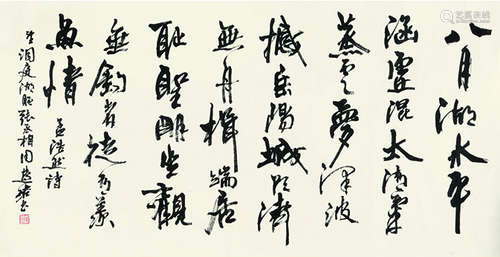 八月湖水平
涵虛混太清氣
蒸云夢澤波
撼岳陽城欲濟
無舟楫端居
耻聖明坐觀
垂釣者徒有羨
魚情 孟浩然詩
望洞庭湖贈張丞相 周慧珺書